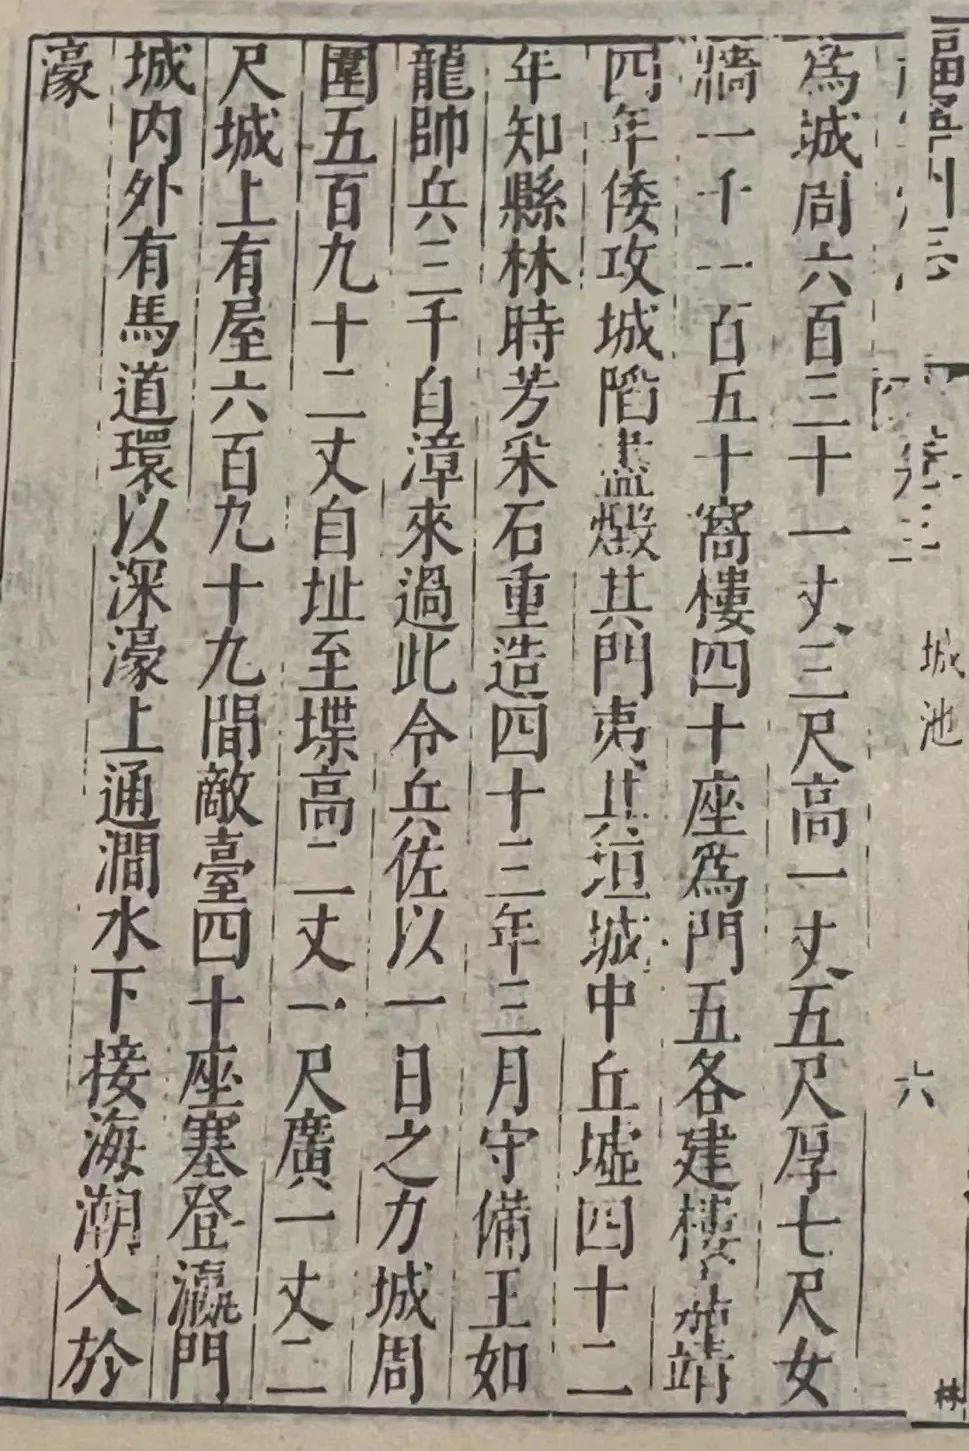 福寧州志
卷三
城池
六
林
為城周六百三十一丈三尺高一丈五尺厚七尺女
牆一千一百五十窩樓四十座為門五各建樓嘉靖
四年倭攻城陷盡燬其門夷其垣城中丘墟四十二
年知縣林時芳采石重造四十三年三月守備王如
龍帥兵三千自漳來過此令兵佐以一日之力城周
圍五百九十二丈自址至堞高二丈一尺廣一丈二
尺城上有屋六百九十九間敵臺四十座塞登瀛門
城内外有馬道環以深濠上通澗水下接海潮入於
濠